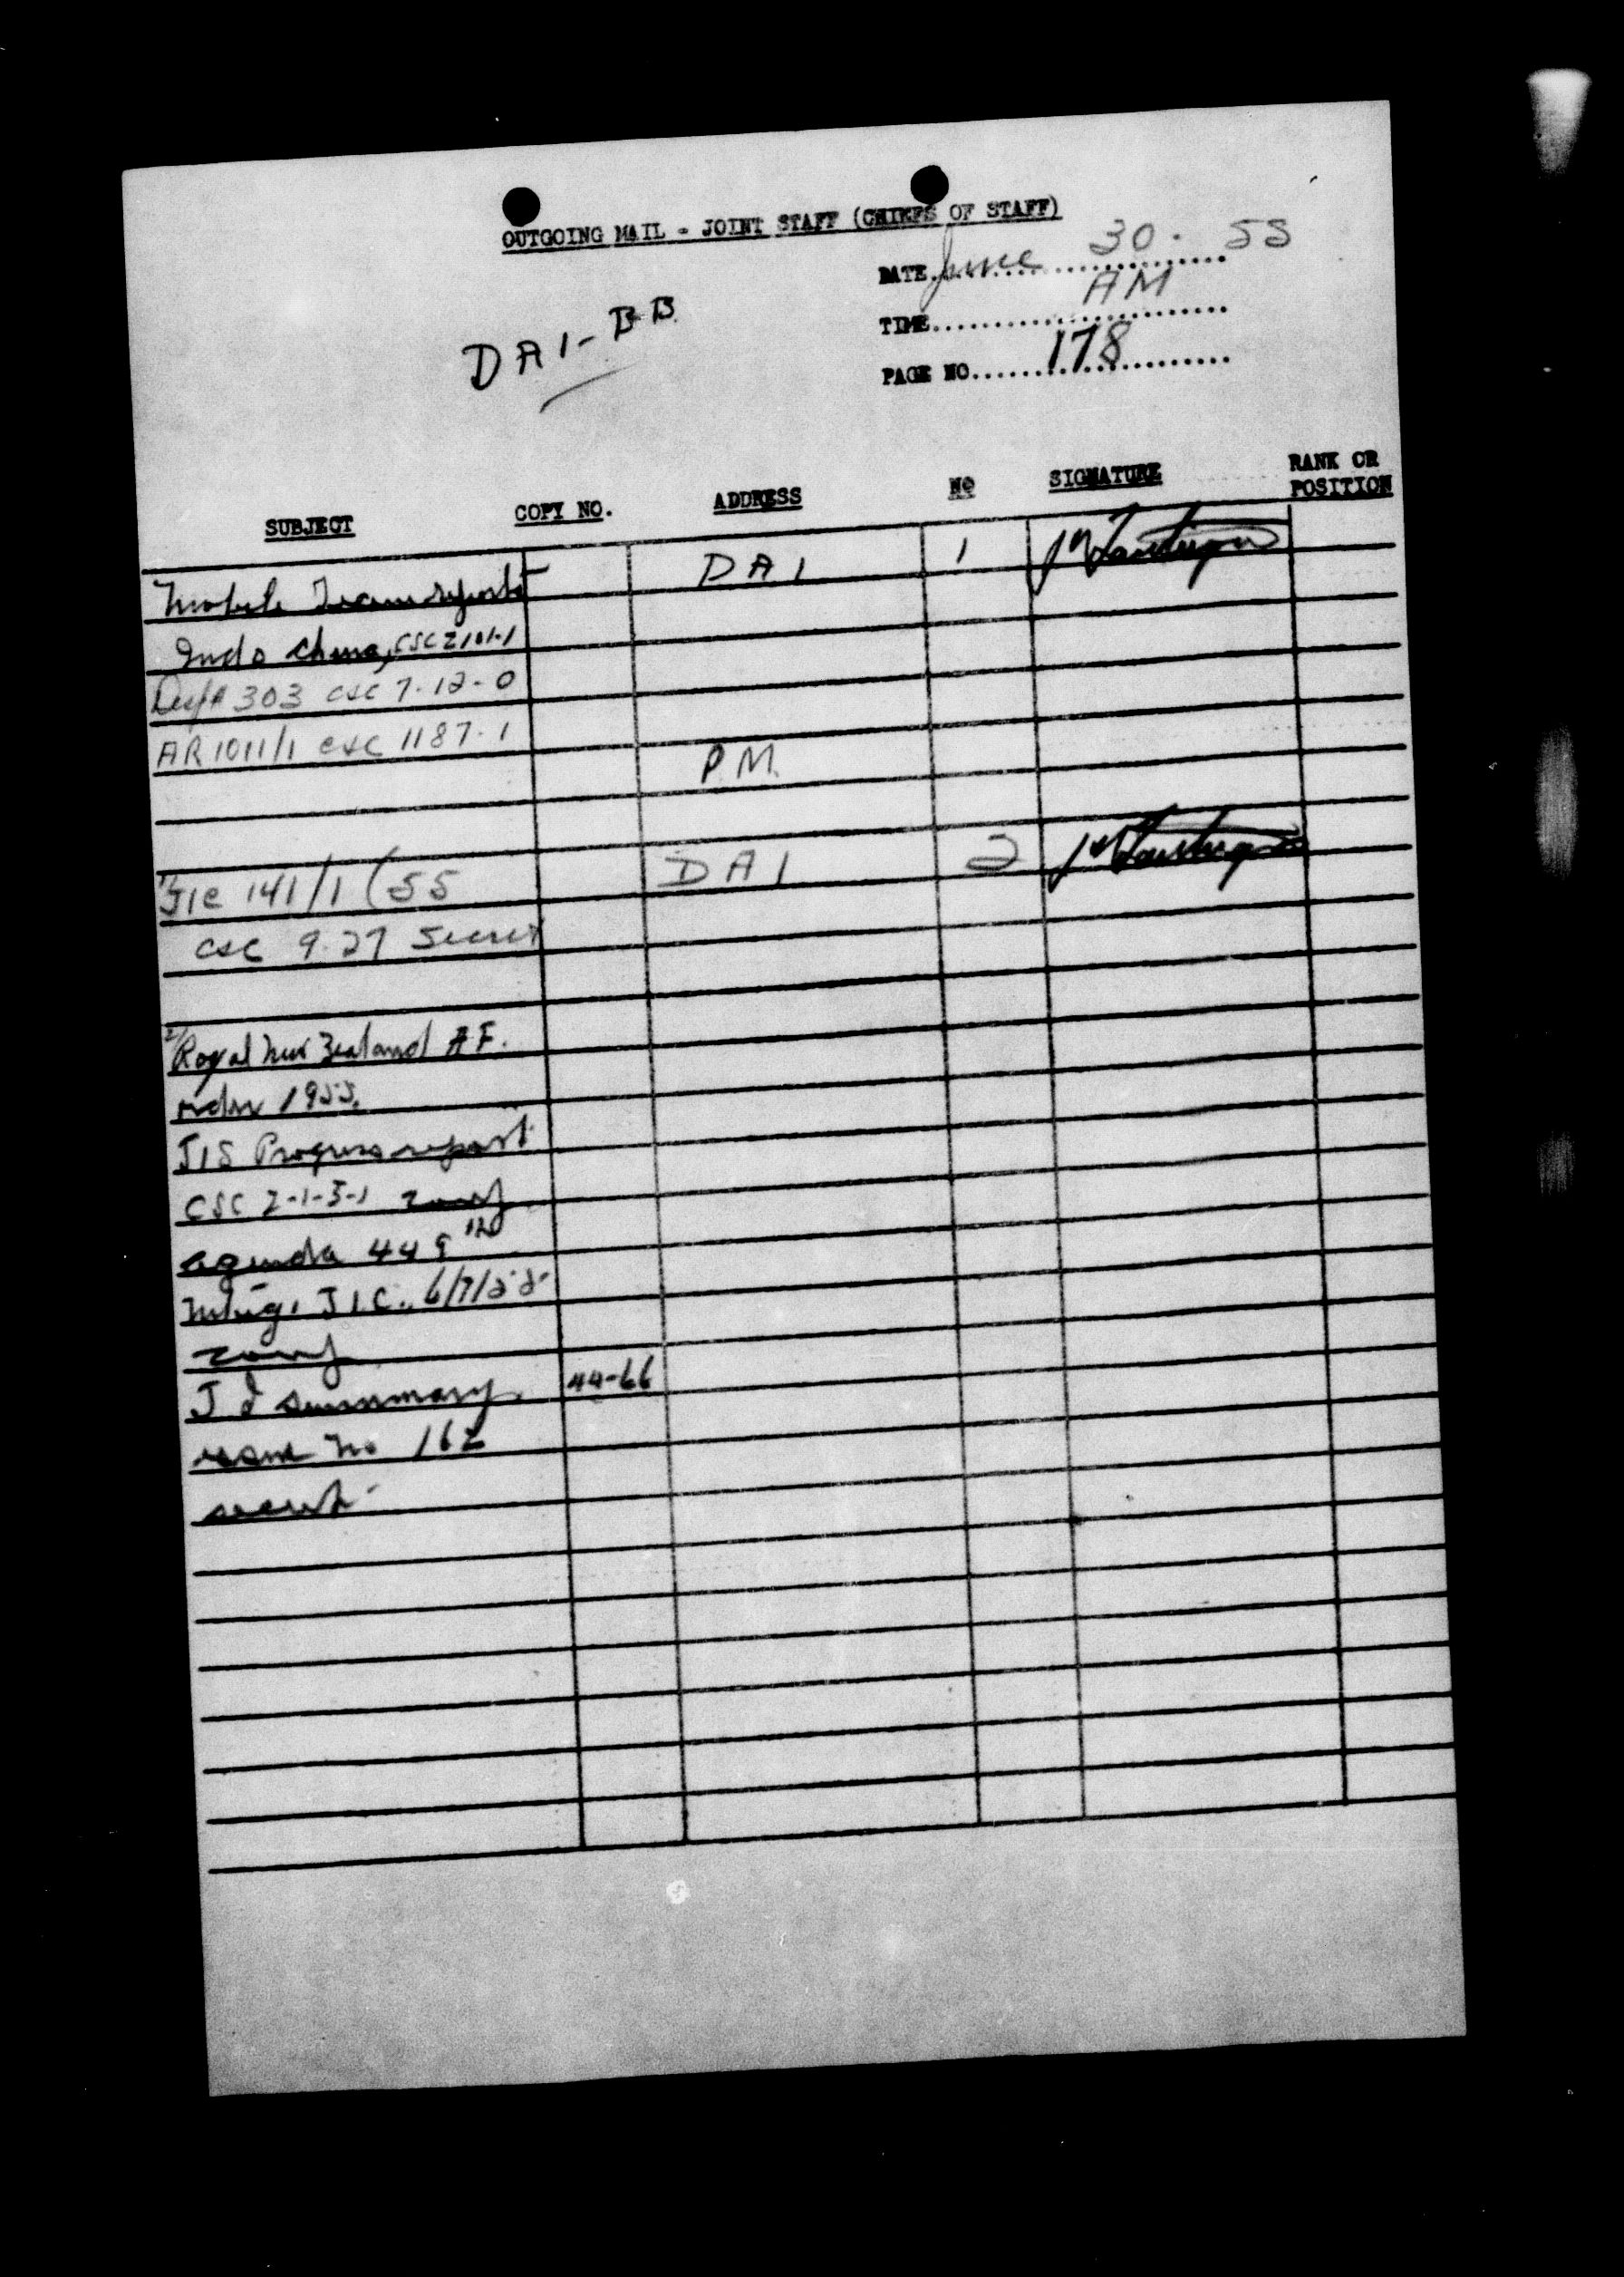 OUTGOING MAIL - JOINT STAFF (CHIEFS OF STAFF)
DATE June 30. 55
TIME AM
PAGE NO 178
DAI-BB
SUBJECT COPY NO. ADDRESS NO SIGNATURE RANK OR POSITION
Mobile Team reports DAI 1
Indo China, CSC 2101-1
303 csc 7-12-0
AR 1011/1 csc 1187-1
P.M.
1/ JIC 141/1 (55 DAI 2
csc 9-27 Secret
2/ Royal New Zealand A.F.
1955.
JIS Progress report
CSC 2-1-3-1 conf
agenda 449th
mtng. J.I.C. 6/7/55
conf
J I summary 44-66
No 162
secret